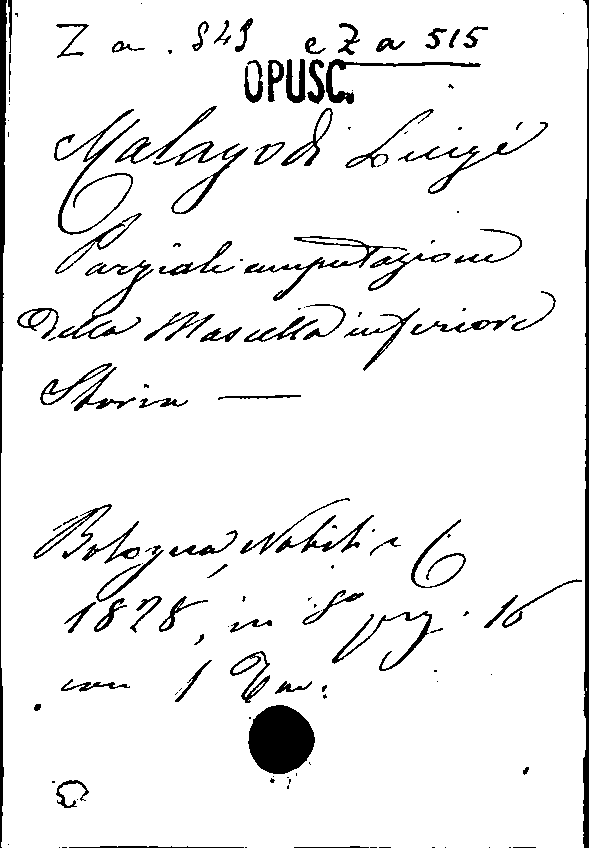 Z a. 849 e Z a 515
OPUSC.
Malagodi Luigi
Parziale amputazione
della Mascella inferiore
Storia —
Bologna, Nobili e C
1828, in 8º pag. 16
con 1 Tav.